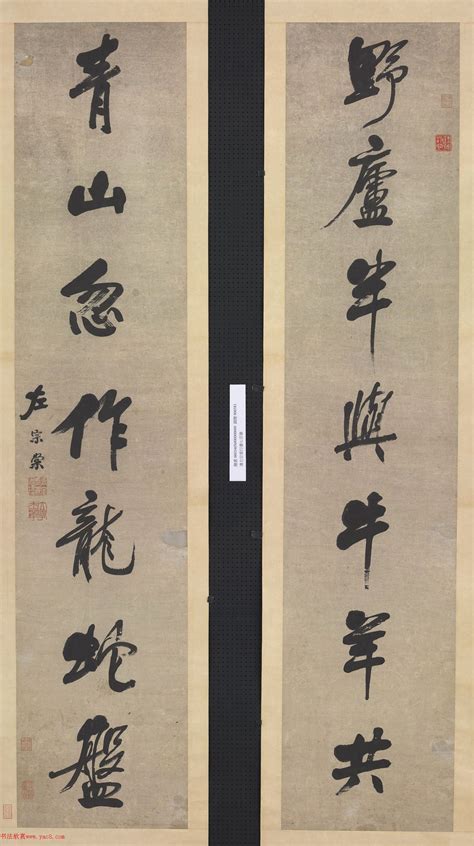 野廬半與牛羊共
青山忽作龍蛇盤
左宗棠
书法欣赏www.yac8.com